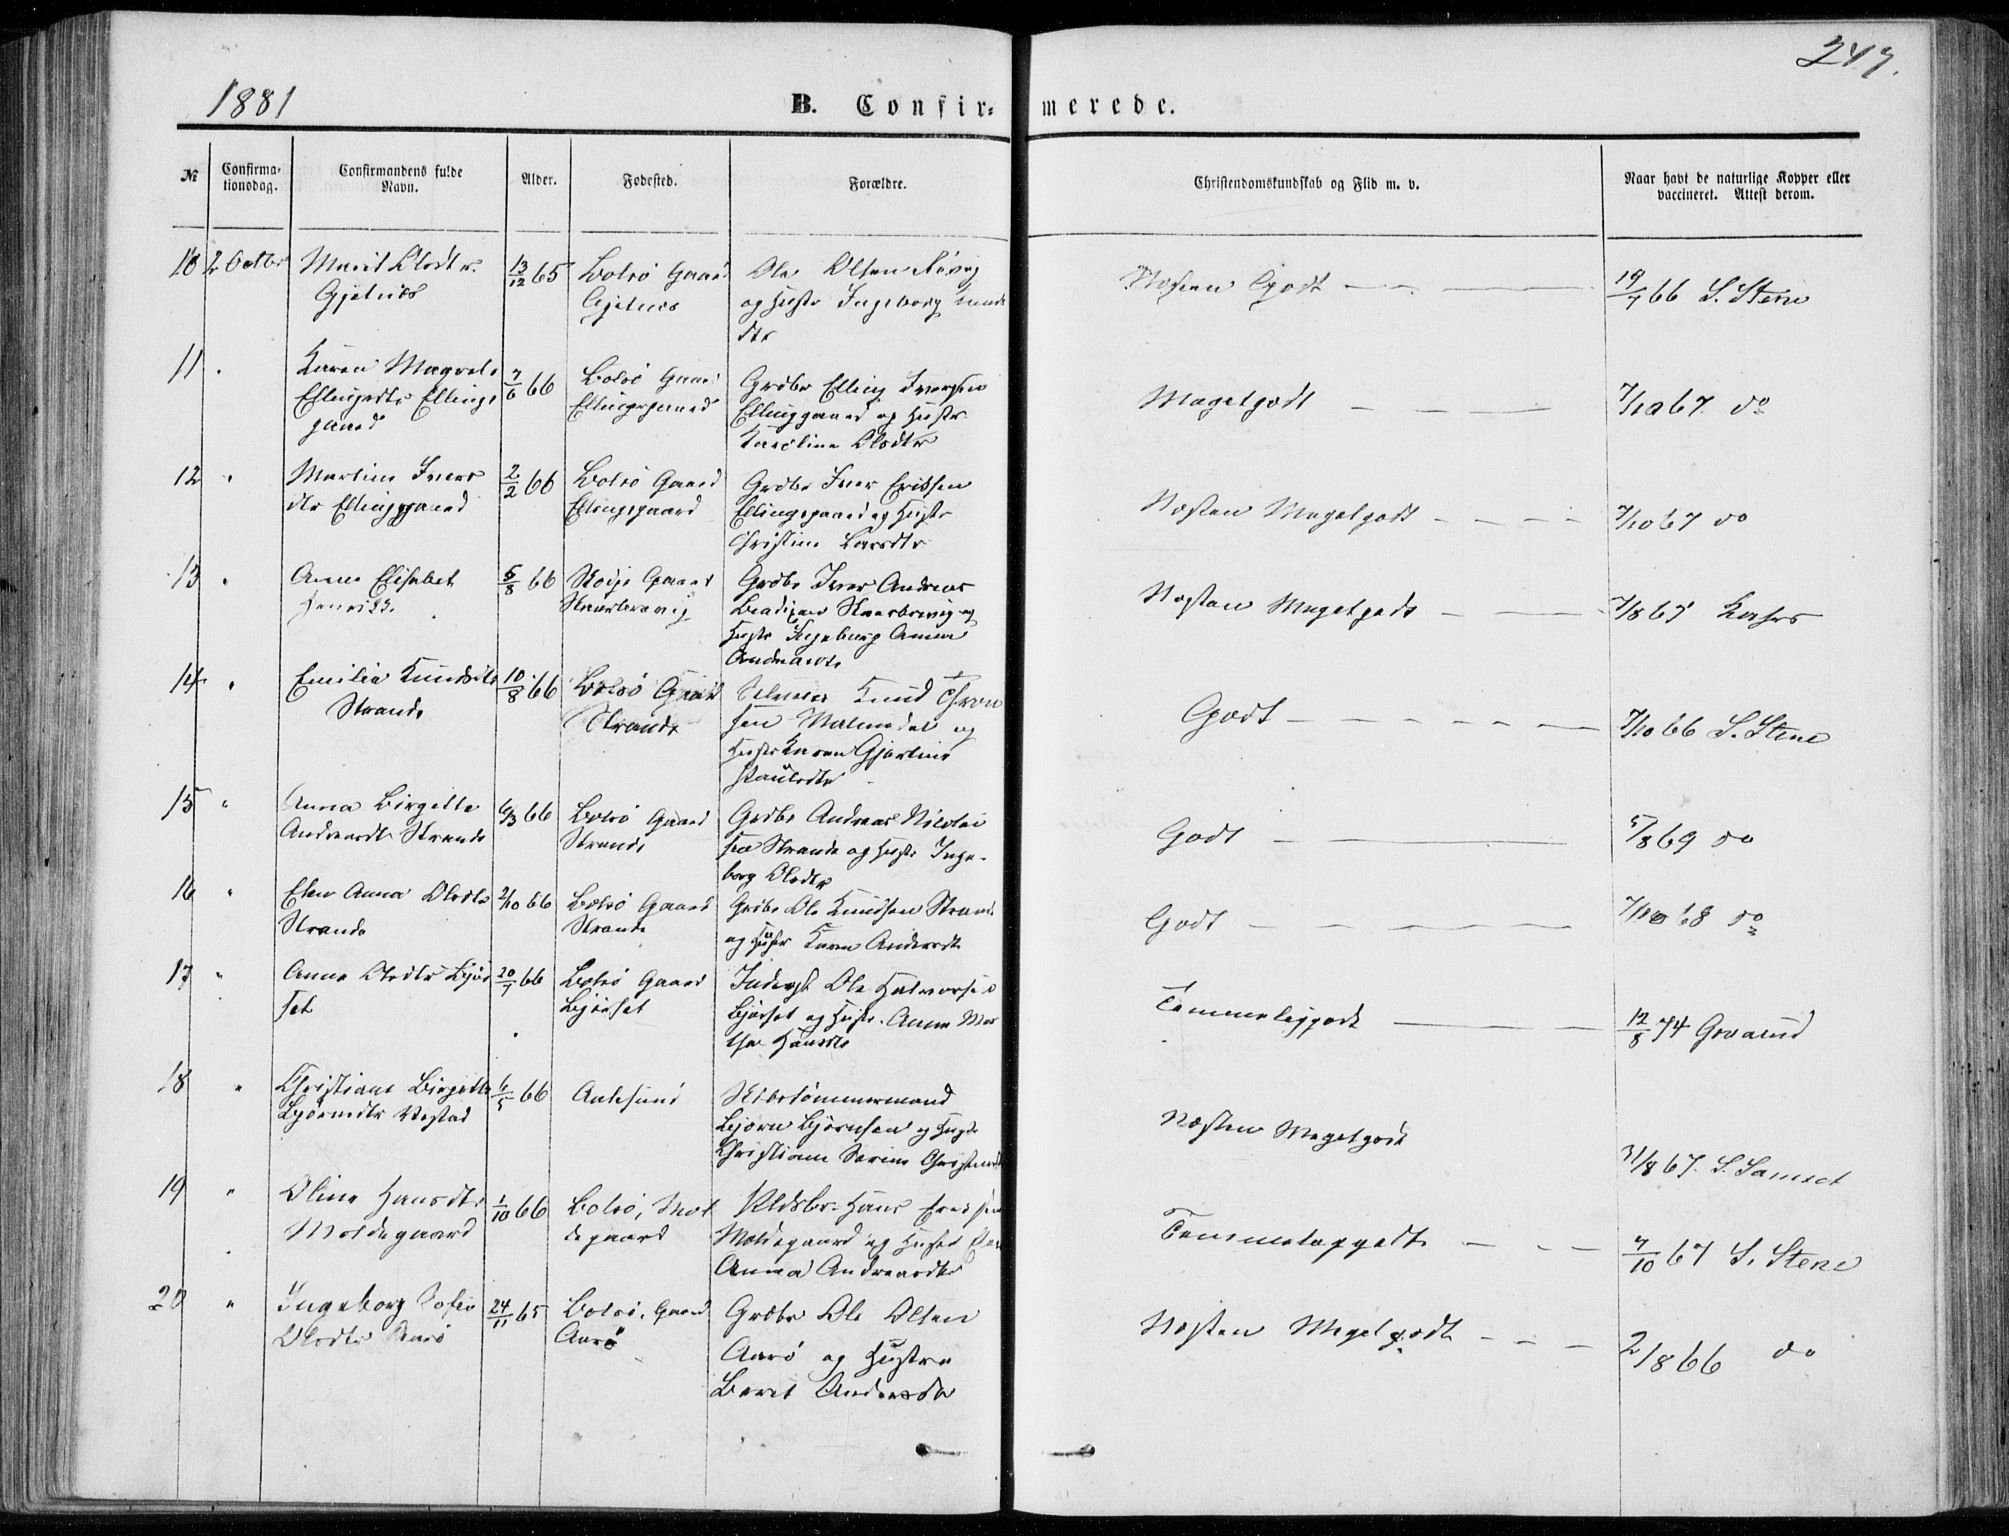 1881
247.
B. Confir- merede.
№
Confirma-
tionsdag.
Confirmandens fulde
Navn.
Alder.
Fødested.
Forældre.
Christendomskundskab og Flid m. v.
Naar havt de naturlige Kopper eller
vaccineret. Attest derom.
10 2 Octbr Marit Olsdtr. 13/12 65 Bolsø Gaard Ole Olsen
Gjelnes Gjelnes og Hustr Ingeborg
dtr
Næsten Godt 19/7 66 S. Stene
11 Karen
Ellingsdtr Ellings
gaard
7/6 66 Bolsø Gaard
Ellingsgaard
Grdbr Elling Iversen
Ellinggaard og Hustr
Karoline Olsdtr
Megetgodt 7/10 67 do
12 " Martine Ivers
dtr Ellinggaard
2/2 66 Bolsø Gaard
Ellingsgaard
Grdbr Iver Eriksen
Ellingsgaard og Hustr
Christine Larsdtr
Næsten Megetgodt 7/10 67 do
13 " Anne Elisabet
5/8 66 Gaard
Grdbr Iver Andreas
og
Hustr Ingeborg Anna
Næsten Megetgodt 7/8 67
14 " Emilie Knudsdtr
Strande
10/8 66 Bolsø Gaard
Strande
Knud Thron
sen Malmedal og
Hustr Karen Gjertine
Paulsdtr
Godt 7/10 66 S. Stene
15 " Anna Birgitte
Andreasdtr Strande
6/3 66 Bolsø Gaard
Strande
Grdbr Andreas Nicolai
sen Strande og Hustr Inge-
borg Olsdtr
Godt 5/8 69 do
16 " Elen Anna Olsdtr
Strande
2/10 66 Bolsø Gaard
Strande
Grdbr Ole Knudsen Strande
og Hustr Karen Andersdtr
Godt 7/10 68 do
17 " Anne Olsdtr Bjør
set
20/7 66 Bolsø Gaard
Bjørset
Ole Halvorsen
Bjørset og Hustr. Anne Mar
the Hansdtr
Temmeliggodt 12/8 74
18 " Christiane Birgitte
Bjørnsdtr Vestad
6/5 66 Aalesund
Skibstømmermand
Bjørn Bjørnsen og Hustr
Christiane Serine
Næsten Megetgodt
31/8 67. S. Samset
19 " Oline Hansdtr
Moldegaard
1/10 66 Bolsø, Mol
degaard
Hans
Moldegaard og Hustr
Anna Andreasdtr
Temmeliggodt 7/10 67 S. Stene
20 " Ingeborg Sofie
Olsdtr Aarø
24/11 65 Bolsø, Gaard
Aarø
Grdbr Ole Olsen
Aarø og Hustru
Beret Andersdtr
Næsten Megetgodt 2/8 66 do